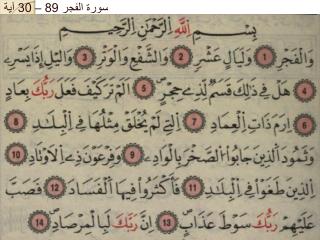 سورة الفجر 89 – 30 آية
بِسْمِ اللَّهِ الرَّحْمَٰنِ الرَّحِيمِ
وَالْفَجْرِ 1 وَلَيَالٍ عَشْرٍ 2 وَالشَّفْعِ وَالْوَتْرِ 3 وَالَّيْلِ إِذَا يَسْرِ
4 هَلْ فِي ذَٰلِكَ قَسَمٌ لِّذِي حِجْرٍ 5 أَلَمْ تَرَ كَيْفَ فَعَلَ رَبُّكَ بِعَادٍ
6 إِرَمَ ذَاتِ الْعِمَادِ 7 الَّتِي لَمْ يُخْلَقْ مِثْلُهَا فِي الْبِلَٰدِ 8
وَثَمُودَ الَّذِينَ جَابُوا الصَّخْرَ بِالْوَادِ 9 وَفِرْعَوْنَ ذِي الْأَوْتَادِ 10
الَّذِينَ طَغَوْا فِي الْبِلَٰدِ 11 فَأَكْثَرُوا فِيهَا الْفَسَادَ 12 فَصَبَّ
عَلَيْهِمْ رَبُّكَ سَوْطَ عَذَابٍ 13 إِنَّ رَبَّكَ لَبِالْمِرْصَادِ 14